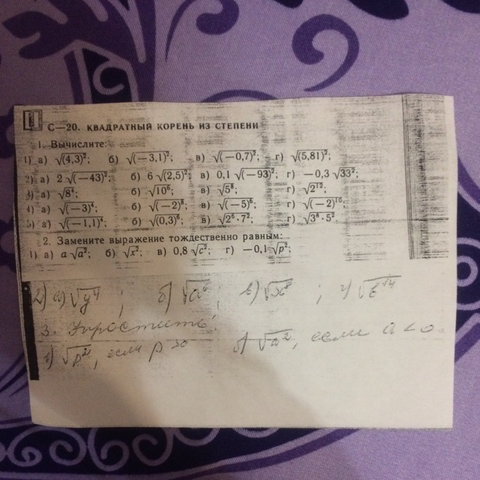 С—20. КВАДРАТНЫЙ КОРЕНЬ ИЗ СТЕПЕНИ
1. Вычислите:
1) а) √(4,3)²; б) √(−3,1)²; в) √(−0,7)²; г) √(5,81)²;
2) а) 2 √(−43)²; б) 6 √(2,5)²; в) 0,1 √(−93)²; г) −0,3 √33²;
3) а) √8⁴; б) √10⁶; в) √5⁸; г) √2¹²;
4) а) √(−3)⁴; б) √(−2)⁶; в) √(−5)⁸; г) √(−2)¹⁰;
5) а) √(−1,1)⁴ б) √(0,3)⁶; в) √2⁶·7²; г) √3⁴·5².
2. Замените выражение тождественно равным:
1) а) a √a²; б) √x²; в) 0,8 √c²; г) −0,1 √p²;
2) а) √y⁴ ; б) √a⁶ ; в) √x⁸ ; г) √b¹⁴
3. Упростить:
а) √p², если p > 0 б) √a², если a < 0